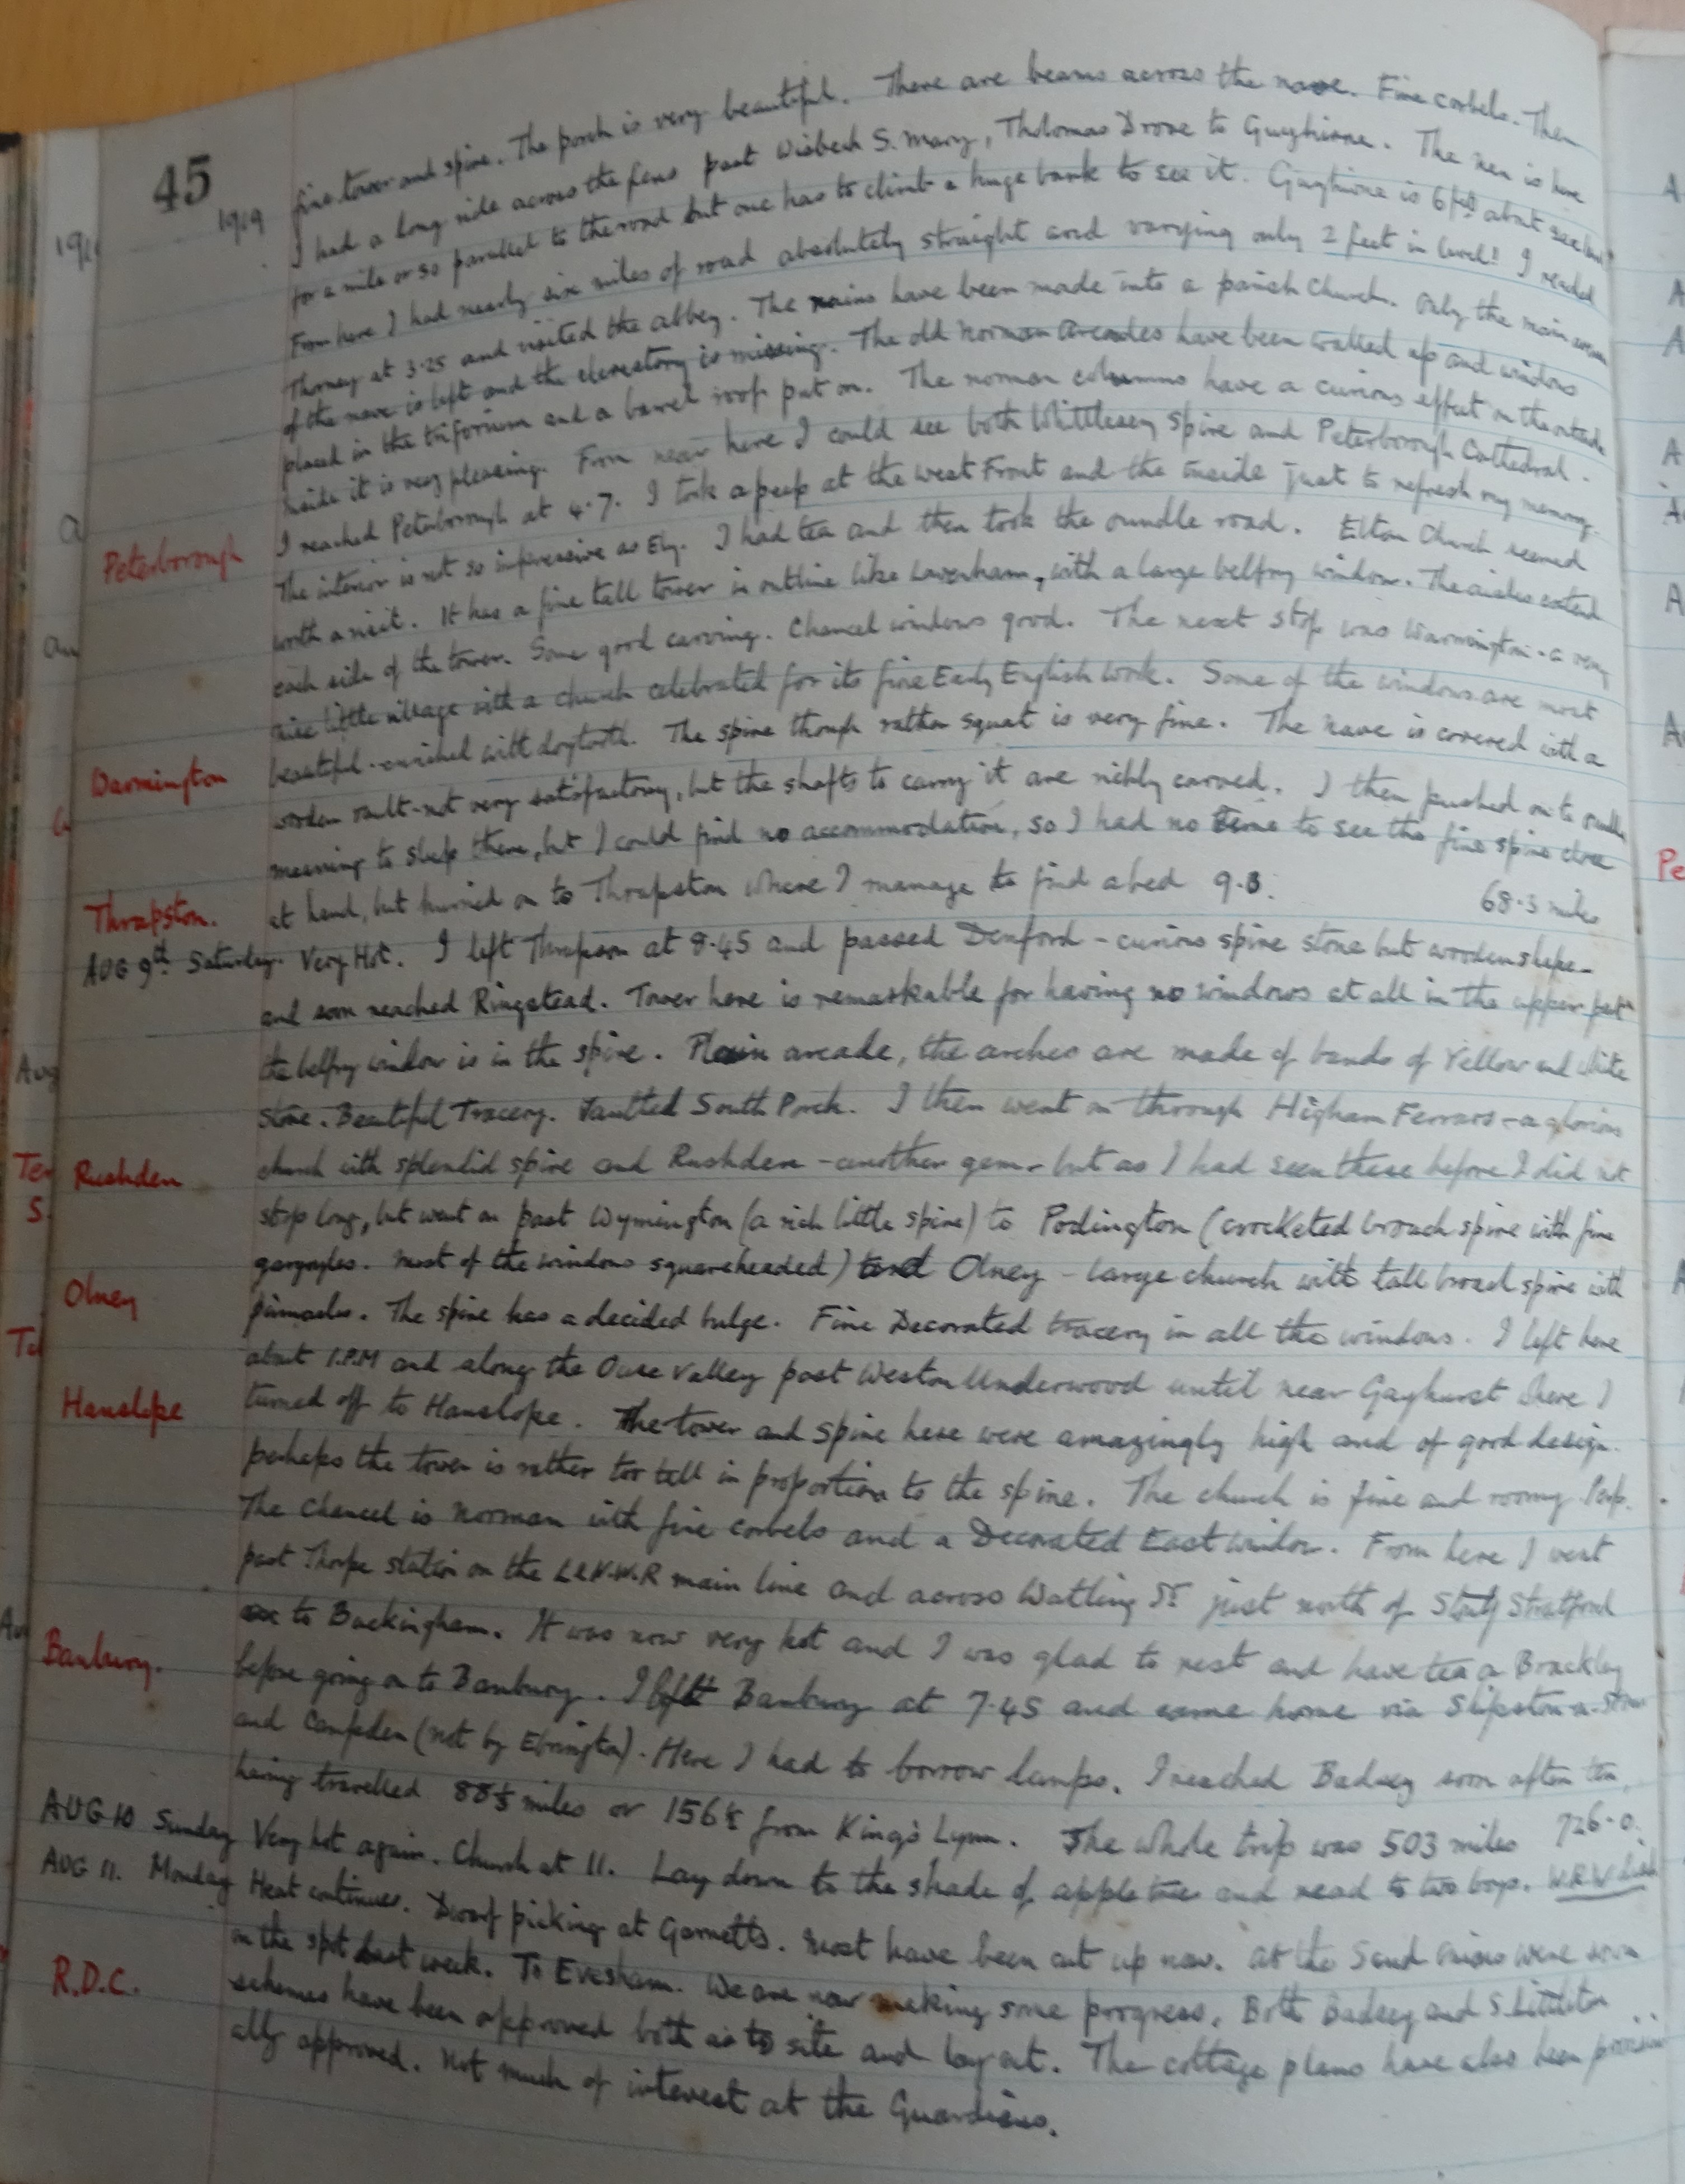 45
1919
fine tower and spire. The porch is very beautiful. There are beams across the nave. Fine corbels. Then
I had a long ride across the fens past Wisbech S. Mary, Tholomas Drove to Guyhirne. The Nen is here
for a mile or so parallel to the road but one has to climb a huge bank to see it. Guyhirne is 6 feet above sea level
From here I had nearly six miles of road absolutely straight and varying only 2 feet in level! I reached
Thorney at 3.25 and visited the abbey. The ruins have been made into a parish church. Only the main
of the nave is left and the clerestory is missing. The old Norman arcades have been walled up and windows
placed in the triforium and a barrel roof put on. The norman columns have a curious effect on the outside
inside it is very pleasing. From near here I could see both Whittlesey Spire and Peterborough Cathedral.
Peterborough
I reached Peterborough at 4.7. I took a peep at the West Front and the inside just to refresh my memory.
The interior is not so impressive as Ely. I had tea and then took the oundle road. Elton Church seemed
worth a visit. It has a fine tall tower in outline like Lavenham, with a large belfry window. The aisles extend
each side of the tower. Some good carving. Chancel windows good. The next stop was Warmington - a very
nice little village with a church celebrated for its fine Early English work. Some of the windows are most
beautiful - enriched with dogtooth. The spire though rather squat is very fine. The nave is covered with a
Warmington
wooden vault - not very satisfactory, but the shafts to carry it are richly carved. I then pushed on to oundle
meaning to sleep there, but I could find no accommodation, so I had no time to see the fine spire close
Thrapston.
at hand, but hurried on to Thrapston where I manage to find a bed 9.3. 68.3 miles
AUG 9th Saturday. Very Hot. I left Thrapson at 8.45 and passed Denford - curious spire stone but wooden shape -
and soon reached Ringstead. Tower here is remarkable for having no windows at all in the upper part
the belfry window is in the spire. Plain arcade, the arches are made of bands of Yellow and White
Stone. Beautiful Tracery. Vaulted South Porch. I then went on through Higham Ferrars - a glorious
Rushden
church with splendid spire and Rushden - another gem - but as I had seen these before I did not
stop long, but went on past Wymington (a rich little spire) to Podington (crocketed broach spire with fine
gargoyles. Most of the windows squareheaded) Olney - large church with tall broach spire with
Olney
pinnacles. The spire has a decided bulge. Fine Decorated tracery in all the windows. I left here
about 1.P.M and along the Ouse Valley past Weston Underwood until near Gayhurst where I
Hanslope
turned off to Hanslope. The tower and spire here were amazingly high and of good design.
perhaps the tower is rather too tall in proportion to the spire. The church is fine and roomy Perp.
The Chancel is Norman with fine corbels and a Decorated East window. From here I went
past Thorpe station on the L&N.W.R main line and across Watling St just north of Stony Stratford
to Buckingham. It was now very hot and I was glad to rest and have tea a Brackley
Banbury.
before going on to Banbury. I left Banbury at 7.45 and came home via Shipston-on-Stour
and Campden (not by Ebrington). Here I had to borrow lamps. I reached Badsey soon after ten,
having travelled 88½ miles or 156¾ from King's Lynn. The whole trip was 503 miles 726.0.
AUG 10 Sunday Very hot again. Church at 11. Lay down to the shade of apple trees and read to two boys.
AUG 11. Monday Heat continues. Dwarf picking at Garnetts. Most have been cut up now. At the Sands
on the spot last week. To Evesham. We are now making some progress. Both Badsey and S. Littleton
R.D.C.
schemes have been approved both as to site and lay out. The cottage plans have also been provision
ally approved. Not much of interest at the Guardians.